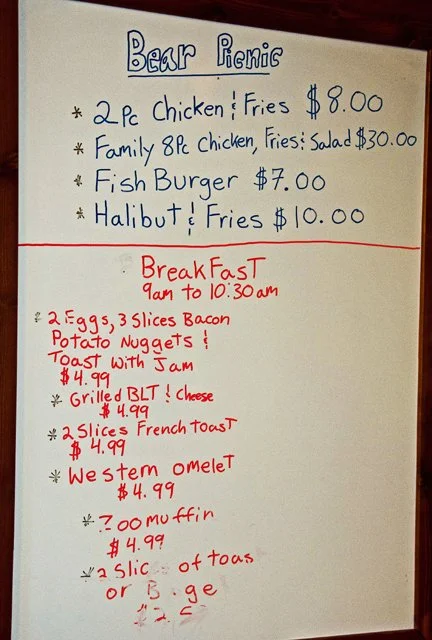 Bear Picnic
* 2 Pc Chicken & Fries $8.00
* Family 8Pc Chicken, Fries & Salad $30.00
* Fish Burger $7.00
* Halibut & Fries $10.00
BreakFasT
9am to 10:30am
* 2 Eggs, 3 Slices Bacon
Potato Nuggets &
Toast with Jam
$4.99
* Grilled BLT & Cheese
$4.99
* 2 Slices French toasT
$4.99
* Western omeleT
$4.99
* Zoo muffin
$4.99
* 2 of
or